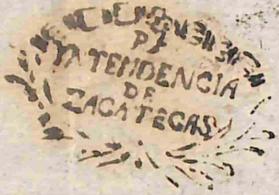 YNTENDENCIA
DE
ZACATECAS